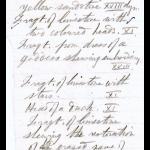 yellow sandstone XVIII dyn.
Fragt. of limestone with
two coloured heads. XI
Fragt. from dress of a
goddess shewing embroidery
XVIII
Fragt. of limestone with
stars. XI
Head of a duck. XI
Fragt. of limestone
shewing the restoration
of the erased name of